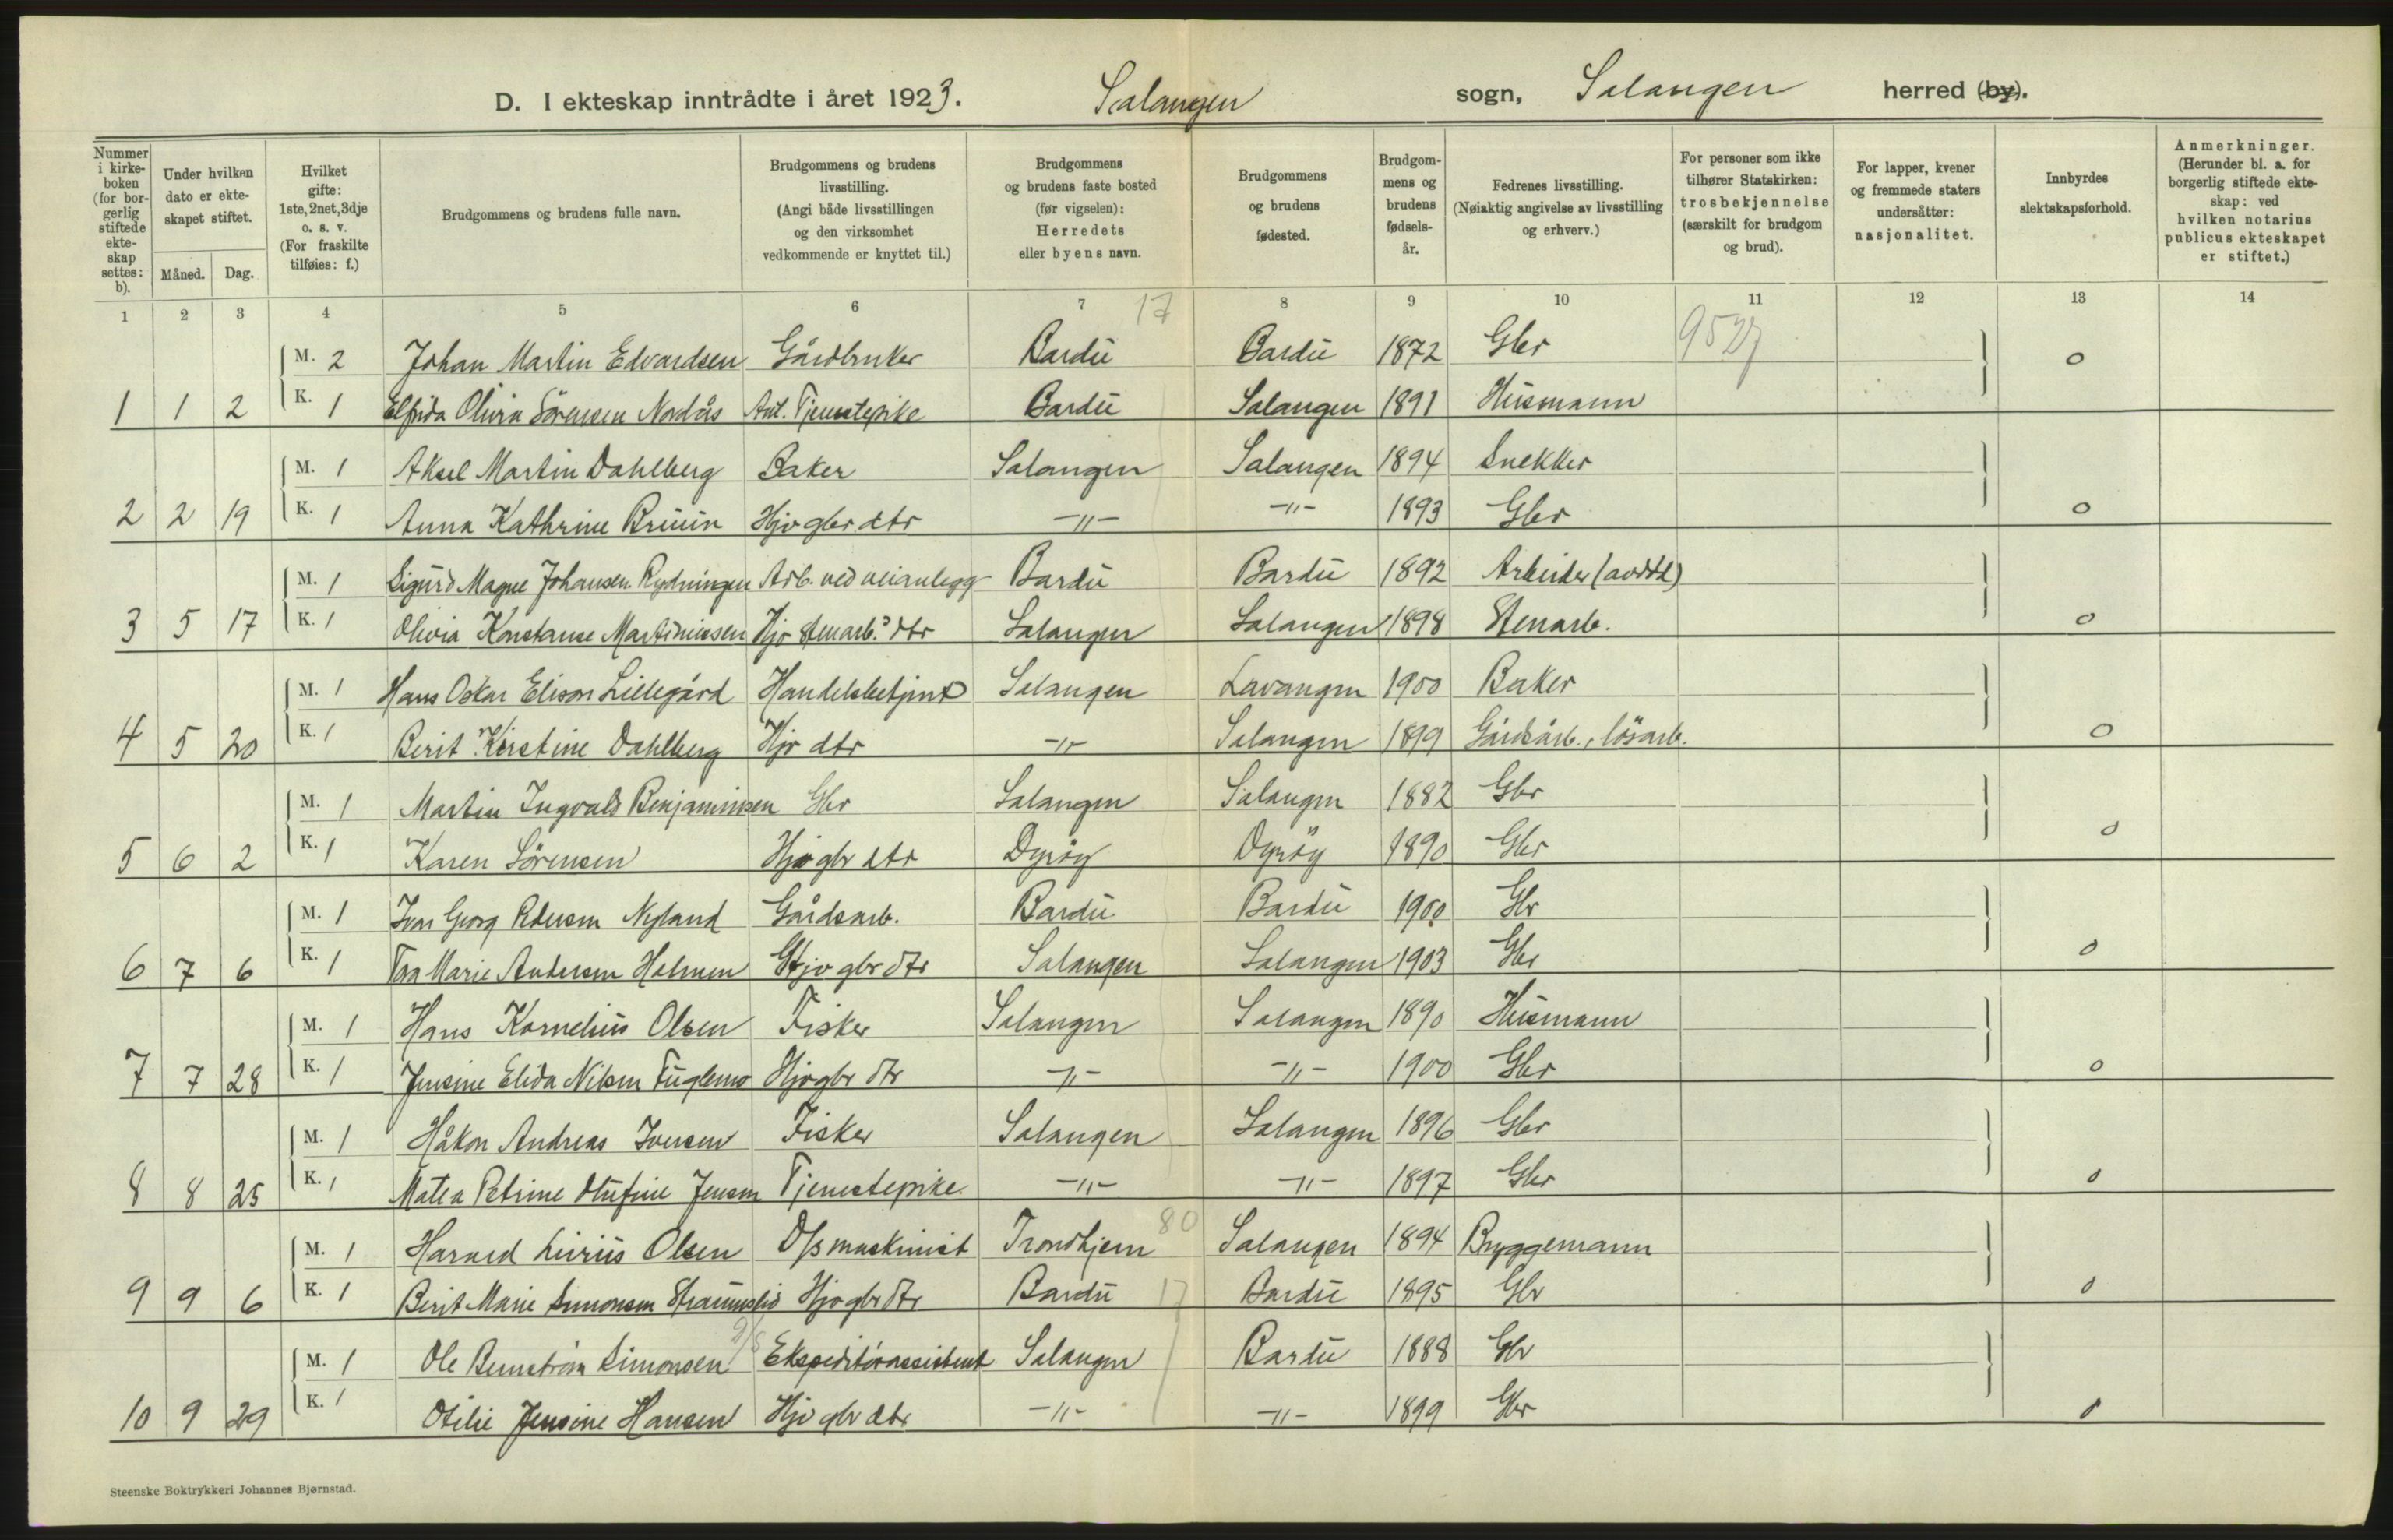 D. I ekteskap inntrådte i året 1923. Salangen sogn, Salangen herred (by).
Nummer i kirkeboken (for borgerlig stiftede ekteskap settes: b).
Under hvilken dato er ekteskapet stiftet.
Måned. Dag.
Hvilket gifte: 1ste, 2net, 3dje o. s. v. (For fraskilte tilføies: f.)
Brudgommens og brudens fulle navn.
Brudgommens og brudens livsstilling. (Angi både livsstillingen og den virksomhet vedkommende er knyttet til.)
Brudgommens og brudens faste bosted (før vigselen): Herredets eller byens navn.
Brudgommens og brudens fødested.
Brudgommens og brudens fødselsår.
Fedrenes livsstilling. (Nøiaktig angivelse av livsstilling og erhverv.)
For personer som ikke tilhører Statskirken: trosbekjennelse (særskilt for brudgom og brud).
For lapper, kvener og fremmede staters undersåtter: nasjonalitet.
Innbyrdes slektskapsforhold.
Anmerkninger. (Herunder bl. a. for borgerlig stiftede ekteskap: ved hvilken notarius publicus ekteskapet er stiftet.)
1 2 3 4 5 6 7 8 9 10 11 12 13 14
17
M. 2 Johan Martin Edvardsen Gårdbruker Bardu Bardu 1872 Gbr 9527 0
1 1 2 K. 1 Elfrida Olivia Sörensen Nordås Ant. Tjenestepike Bardu Salangen 1891 Husmann
M. 1 Aksel Martin Dahlberg Baker Salangen Salangen 1894 Snekker
2 2 19 K. 1 Anna Kathrine Bruun Hjv gbr dtr -"- -"- 1893 Gbr 0
M. 1 Sigurd Magne Johansen Rydningen Arb. ved veianlegg Bardu Bardu 1892 Arbeider (avdød)
3 5 17 K. 1 Olivia Konstanse Martinussen Hjv stenarb.s dtr Salangen Salangen 1898 Stenarb. 0
M. 1 Hans Oskar Elison Lillegård Handelsbetjent Salangen Lavangen 1900 Baker
4 5 20 K. 1 Berit Kirstine Dahlberg Hjv dtr -"- Salangen 1899 Gårdsarb., lösarb. 0
M. 1 Martin Ingvald Benjaminsen Gbr Salangen Salangen 1882 Gbr
5 6 2 K. 1 Karen Sörensen Hjv gbr dtr Dyröy Dyröy 1890 Gbr 0
M. 1 Ivar Georg Pedersen Nyland Gårdsarb. Bardu Bardu 1900 Gbr
6 7 6 K. 1 Marie Andersen Holmen Hjv gbr dtr Salangen Salangen 1903 Gbr 0
M. 1 Hans Kornelius Olsen Fisker Salangen Salangen 1890 Husmann
7 7 28 K. 1 Jensine Elida Nilsen Fuglemo Hjv gbr dtr -"- -"- 1900 Gbr 0
M. 1 Håkon Andreas Iversen Fisker Salangen Salangen 1896 Gbr
8 8 25 K. 1 Matea Petrine Olufine Jensen Tjenestepike -"- -"- 1897 Gbr 0
80
M. 1 Harald Olsen D/s maskinist Trondhjem Salangen 1894 Bryggemann
9 9 6 K. 1 Berit Marie Simonsen Straumslid Hjv gbr dtr Bardu 17 Bardu 1895 Gbr 0
M. 1 Ole Simonsen Ekspeditörassistent Salangen Bardu 1888 Gbr
10 9 29 K. 1 Otilie Jensine Hansen Hjv gbr dtr -"- -"- 1899 Gbr 0
Steenske Boktrykkeri Johannes Bjørnstad.